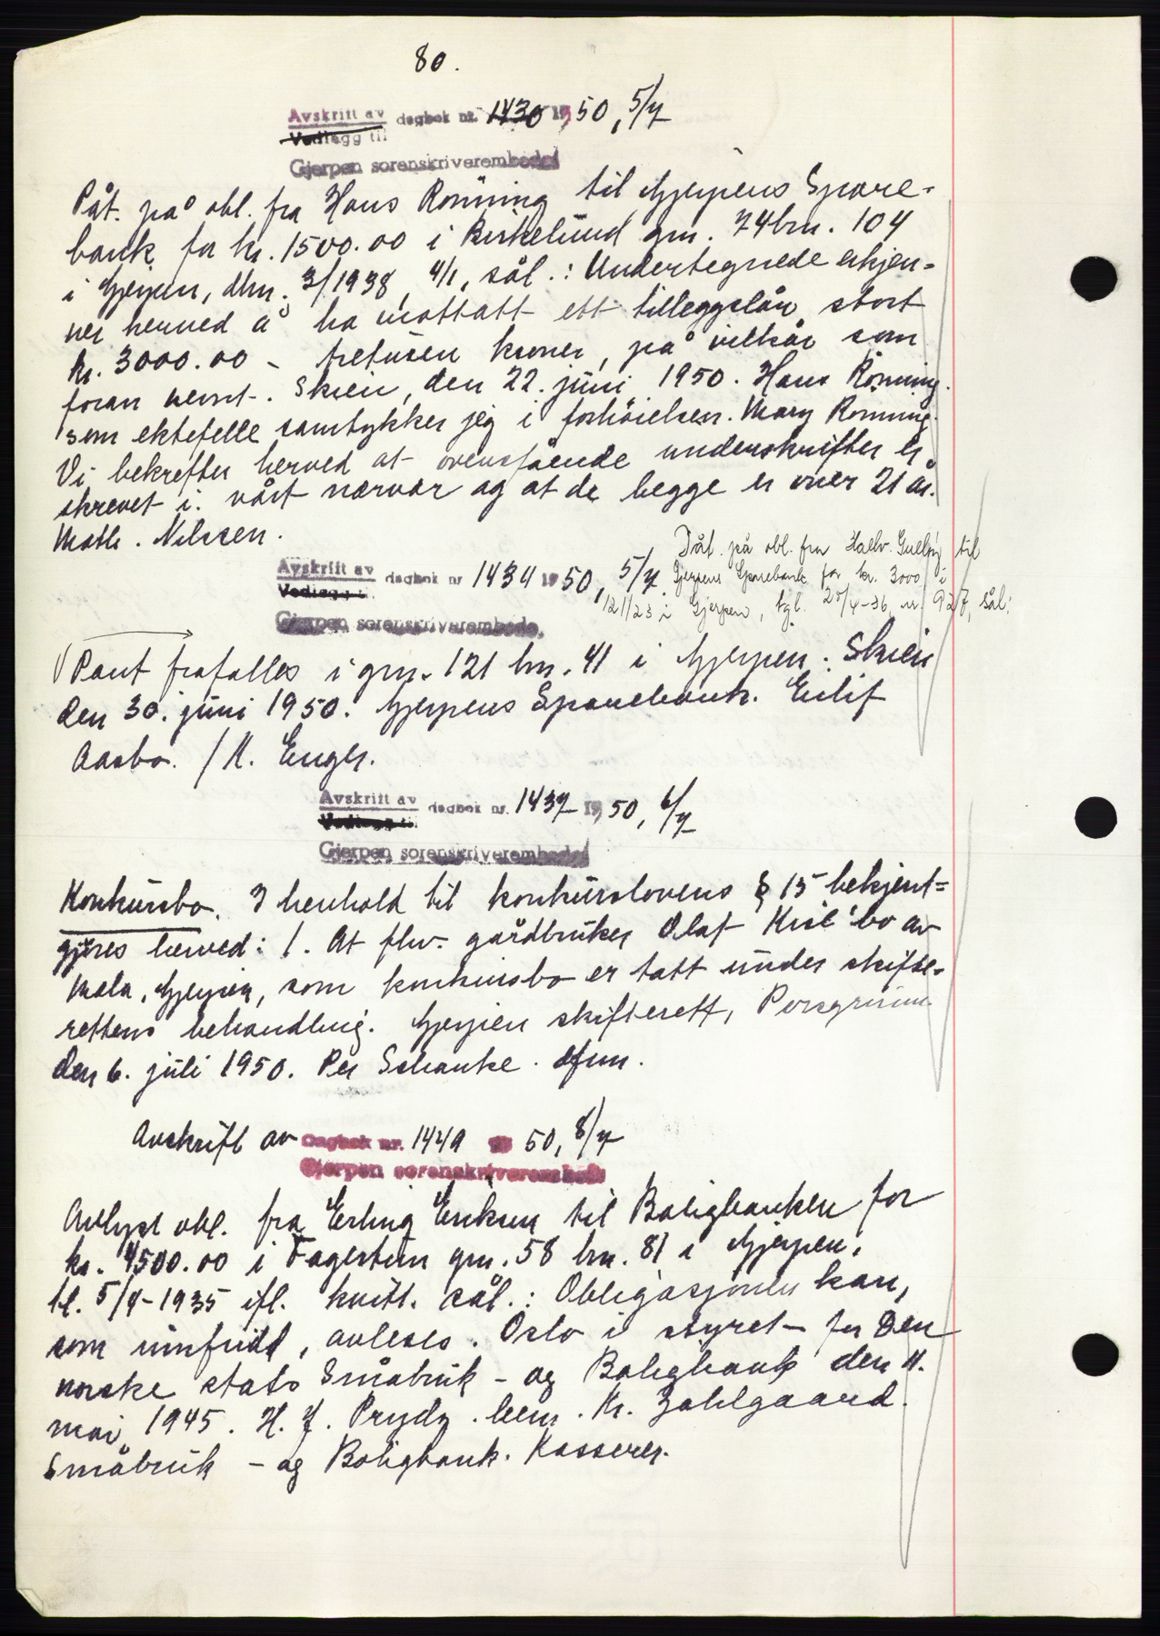 80.
Avskrift av dagbok nr. 1430 1950, 5/7
Vedlegg til
Gjerpen sorenskriverembede
Påt. på obl. fra Hans Rönning til Gjerpens Spare-
bank for kr. 1500.00 i Birkelund gnr. 74 brn. 104
i Gjerpen, dbn. 3/1938, 4/1, sål.: Undertegnede erkjen-
ner herved å ha mottatt ett tilleggslån stort
kr. 3000.00 - tretusen kroner, på vilkår som
foran nevnt. Skien, den 22. juni 1950. Hans Rönning.
som ektefelle samtykker jeg i forhöielsen. Mary Rönning.
Vi bekrefter herved at ovenstående underskrifter er
skrevet i vårt nærvær og at de begge er over 21 år.
Math. Nilssen.
Påt. på obl. fra Halv. til
Avskrift av dagbok nr 1434 1950, 5/7. Gjerpens Sparebank for kr. 3000 i
Vedlegg til
121/23 i Gjerpen, tgl. 25/4-36, nr. 927, sål:
Gjerpen sorenskriverembede.
Pant frafalles i gnr. 121 brn. 41 i Gjerpen. Skien
den 30. juni 1950. Gjerpens Sparebank. Eilif
Aasbo. / K. Enger.
Avskrift av dagbok nr. 1437 1950, 6/7
Vedlegg til
Gjerpen sorenskriverembede
Konkursbo. I henhold til konkurslovens § 15 bekjent-
gjöres herved: 1. At fhv. gårdbruker Olaf bo av
Mæla, Gjerpen, som konkursbo er tatt under skifte-
rettens behandling. Gjerpen skifterett, Porsgrunn
den 6. juli 1950. Per Schanke. dfm.
Avskrift av Dagbok nr. 1449 19 50, 8/7
Gjerpen sorenskriverembede
Avlyst obl. fra Erling Eriksen til Boligbanken for
kr. 4500.00 i Fagertun gnr. 58 brn. 81 i Gjerpen,
tl. 5/4-1935 ifl. kvitt. sål.: Obligasjonen kan,
som innfridd, avleses. Oslo i styret for Den
norske stats Småbruk - og Boligbank den 11.
mai 1945. H. J. Prydz. Kr. Dahlgaard.
Småbruk - og Boligbank. Kasserer.